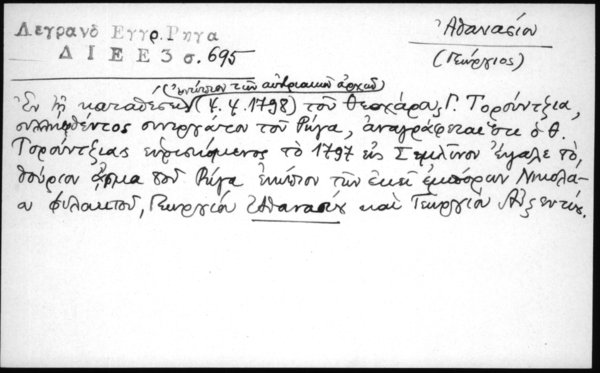 Λεγρανδ Εγγρ. Ρηγα
ΔΙΕΕ 3 σ. 695
Ἀθανασίου
(Γεώργιος)
(ἐνώπιον τῶν αὐστριακῶν ἀρχῶν)
Ἐν τῇ καταθέσει (4.4.1798) τοῦ Θεοχάρους Γ. Τορούντζια,
συλληφθέντος συνεργάτου τοῦ Ρήγα, ἀναγράφεται ὅτι ὁ Θ.
Τορούντζιας εὑρισκόμενος τὸ 1797 εἰς Σεμλῖνον ἔψαλε τὸ
θούριον ᾆσμα τοῦ Ρήγα ἐνώπιον τῶν ἐκεῖ ἐμπόρων Νικολά-
ου Φιλαππου, Γεωργίου Ἀθανασίου καὶ Γεωργίου Αὐξεντίου.